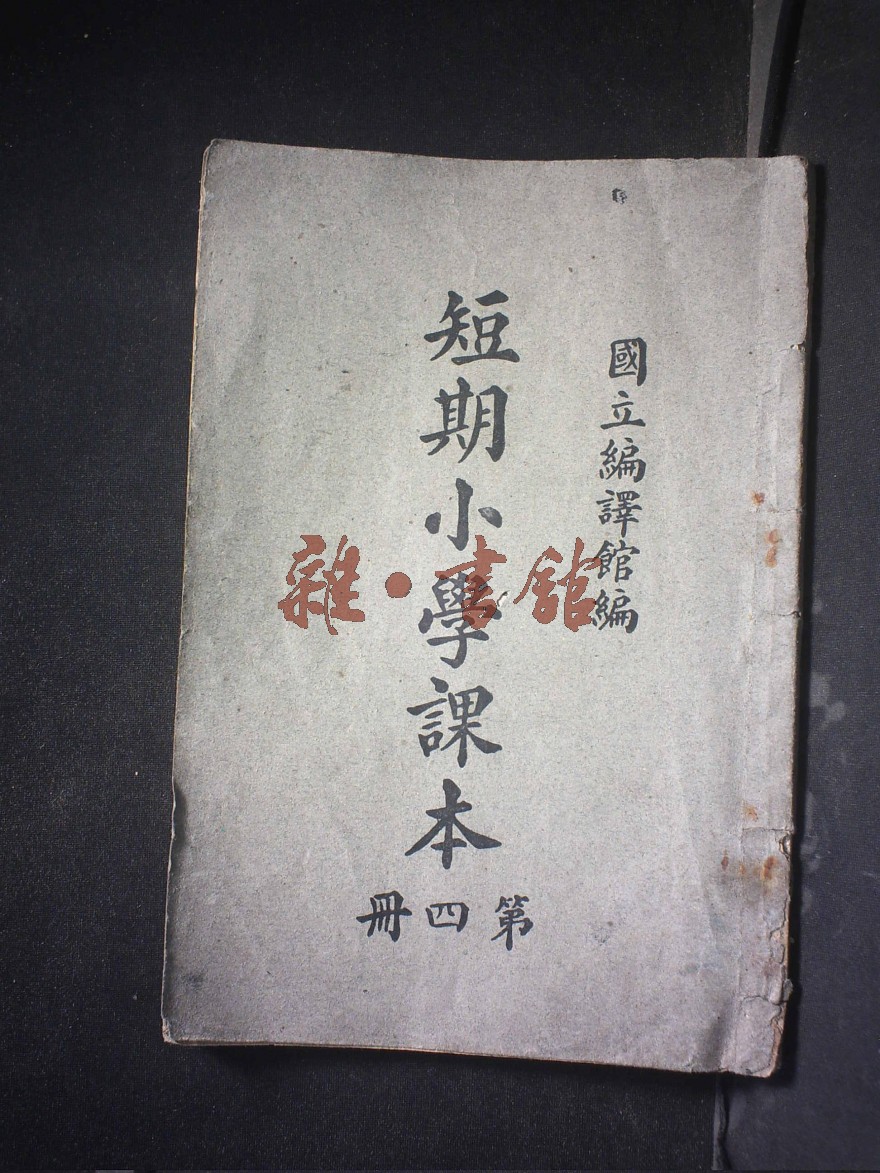 國立編譯館編
短期小學課本
第四冊
雜·書館